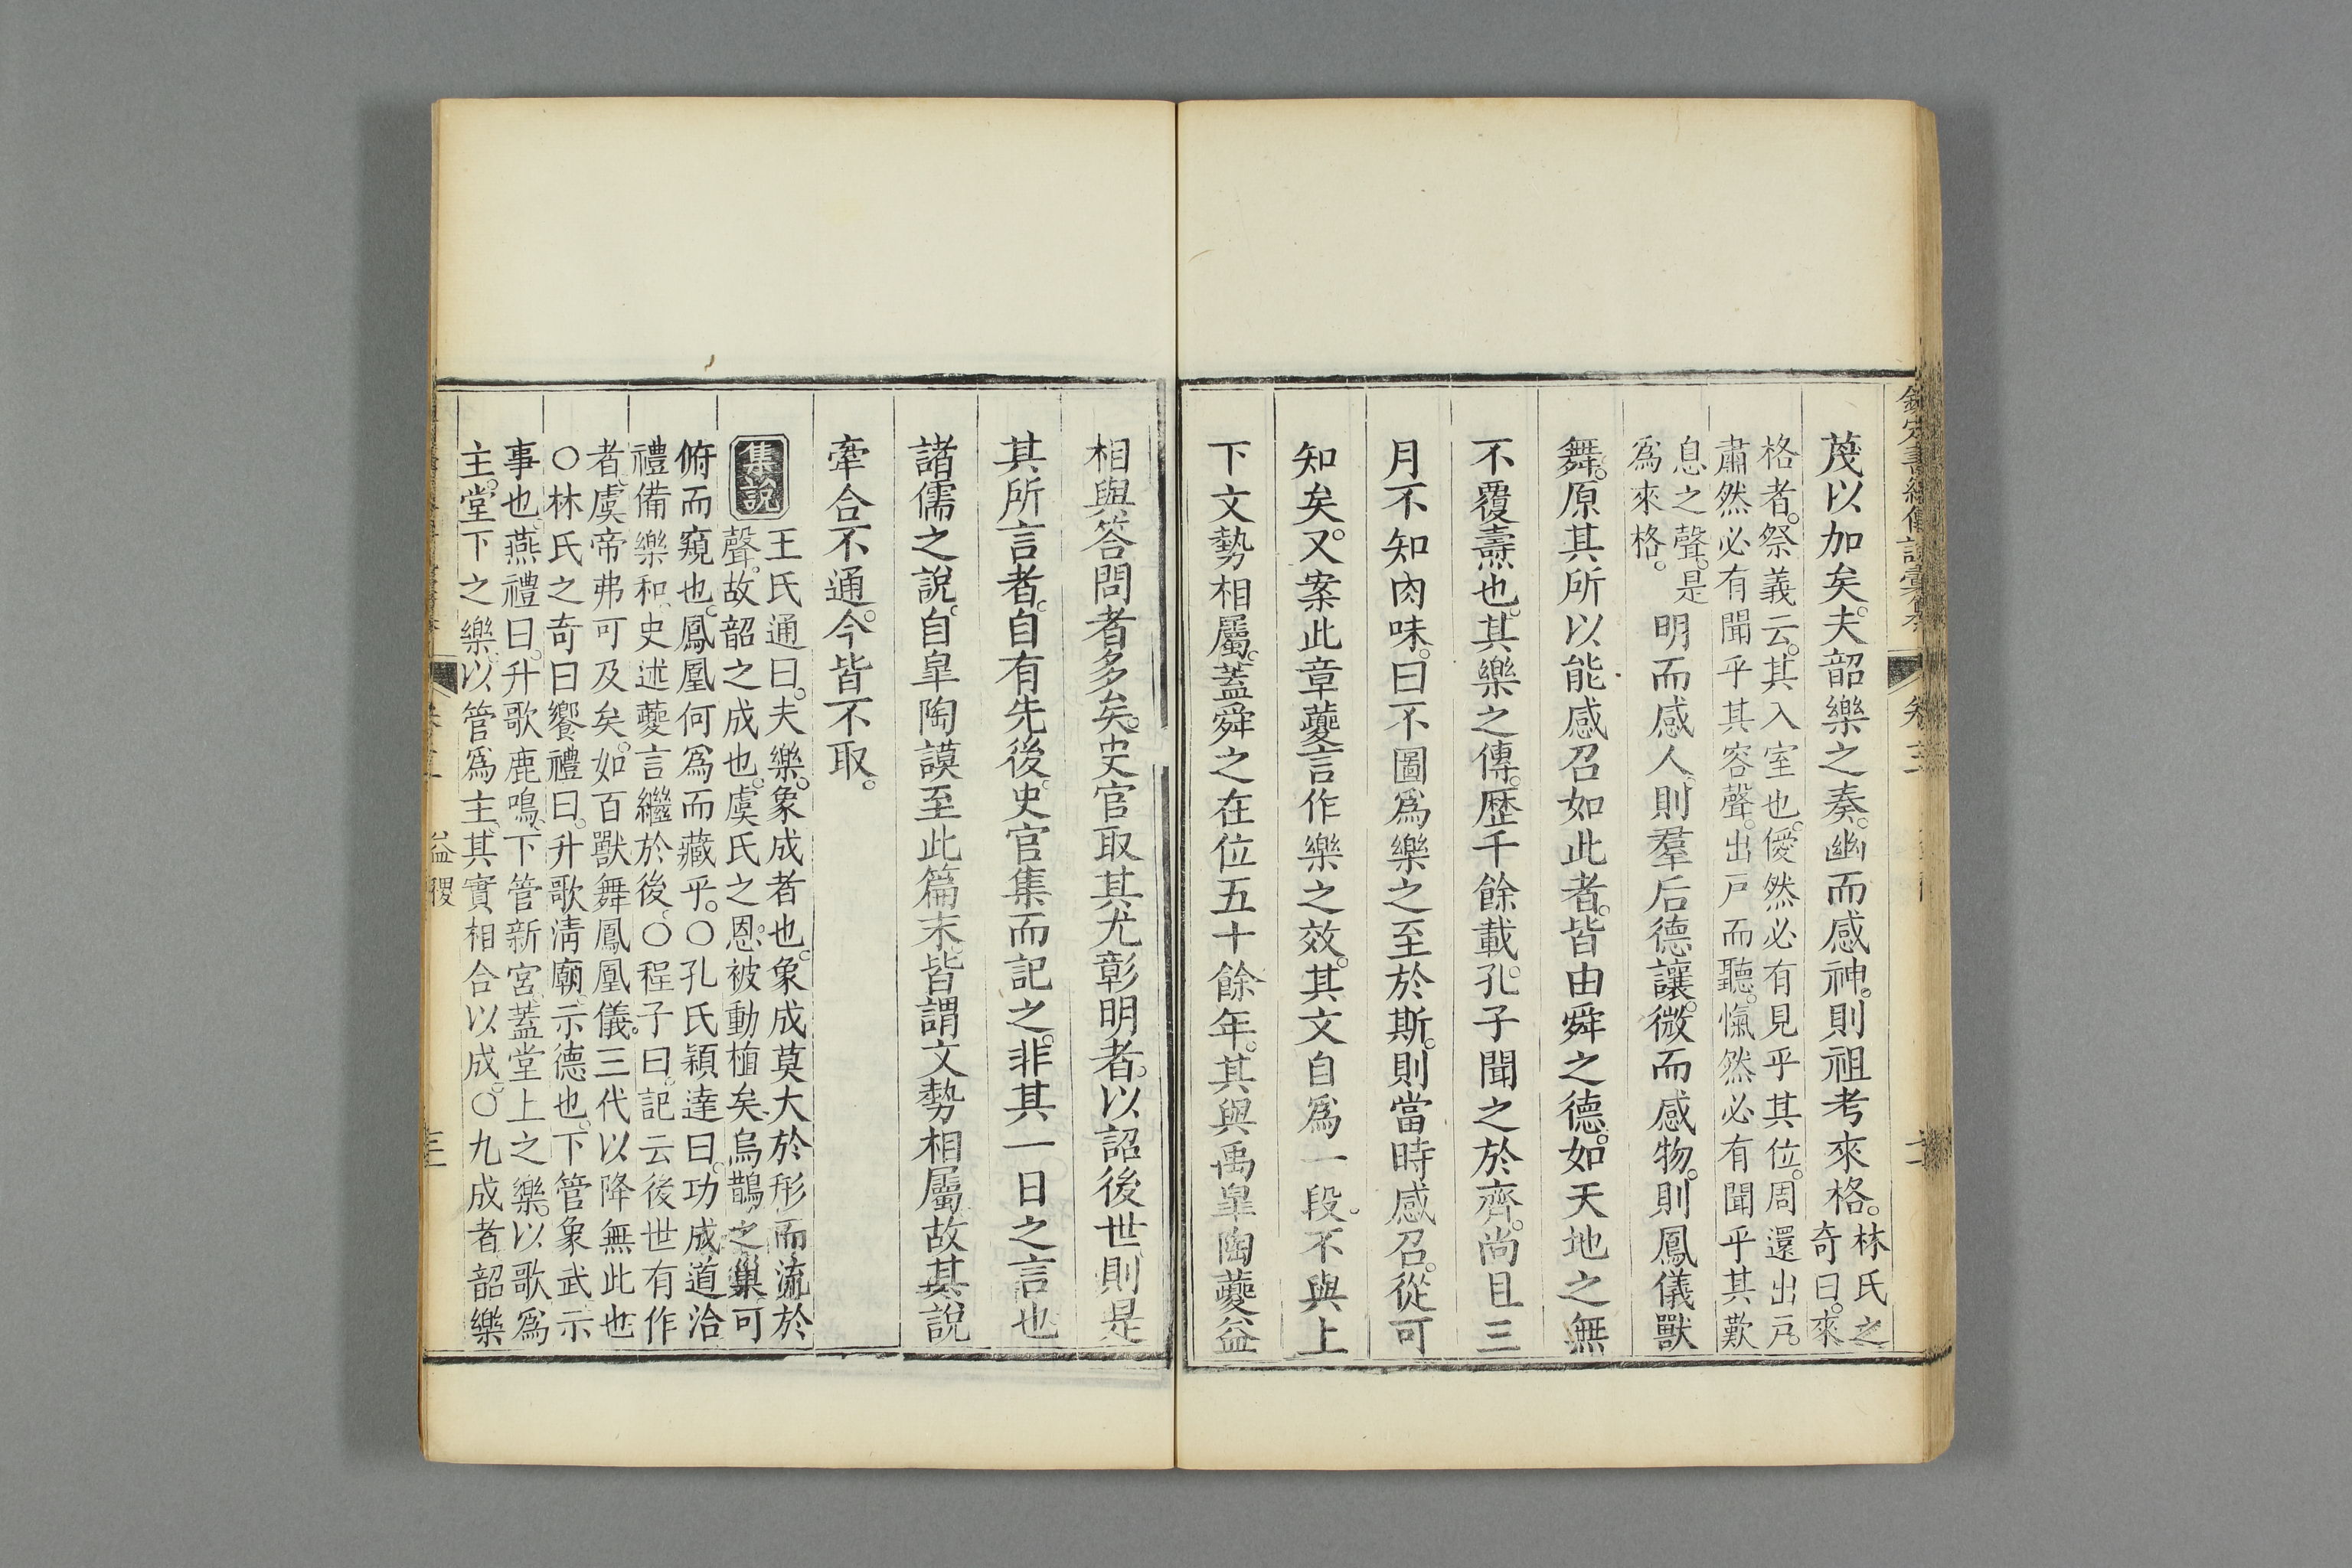 蔑以加矣。夫韶樂之奏。幽而感神。則祖考來格。林氏之
奇曰。來
格者。祭義云。其入室也。僾然必有見乎其位。周還出戸。
肅然必有聞乎其容聲。出戸而聽。愾然必有聞乎其歎
息之聲。是
爲來格。
明而感人。則羣后德讓。微而感物。則鳳儀獸
舞。原其所以能感召如此者。皆由舜之德。如天地之無
不覆燾也。其樂之傳。歷千餘載。孔子聞之於齊。尚且三
月不知肉味。曰不圖爲樂之至於斯。則當時感召。從可
知矣。又案此章夔言作樂之效。其文自爲一段。不與上
下文勢相屬。蓋舜之在位五十餘年。其與禹皐陶夔益
相與答問者多矣。史官取其尤彰明者。以詔後世。則是
其所言者。自有先後。史官集而記之。非其一日之言也
諸儒之說。自皐陶謨至此篇末。皆謂文勢相屬。故其說
牽合不通。今皆不取。
集說
王氏通曰。夫樂。象成者也。象成莫大於形而流於
聲。故韶之成也。虞氏之恩。被動植矣。烏鵲之巢。可
俯而窺也。鳳凰何爲而藏乎。○孔氏穎達曰。功成道洽
禮備樂和。史述夔言繼於後。○程子曰。記云後世有作
者。虞帝弗可及矣。如百獸舞鳳凰儀。三代以降無此也
○林氏之奇曰饗禮曰。升歌淸廟。示德也。下管象武示
事也。燕禮曰。升歌鹿鳴。下管新宮。蓋堂上之樂。以歌爲
主。堂下之樂。以管爲主。其實相合以成。○九成者韶樂
益稷